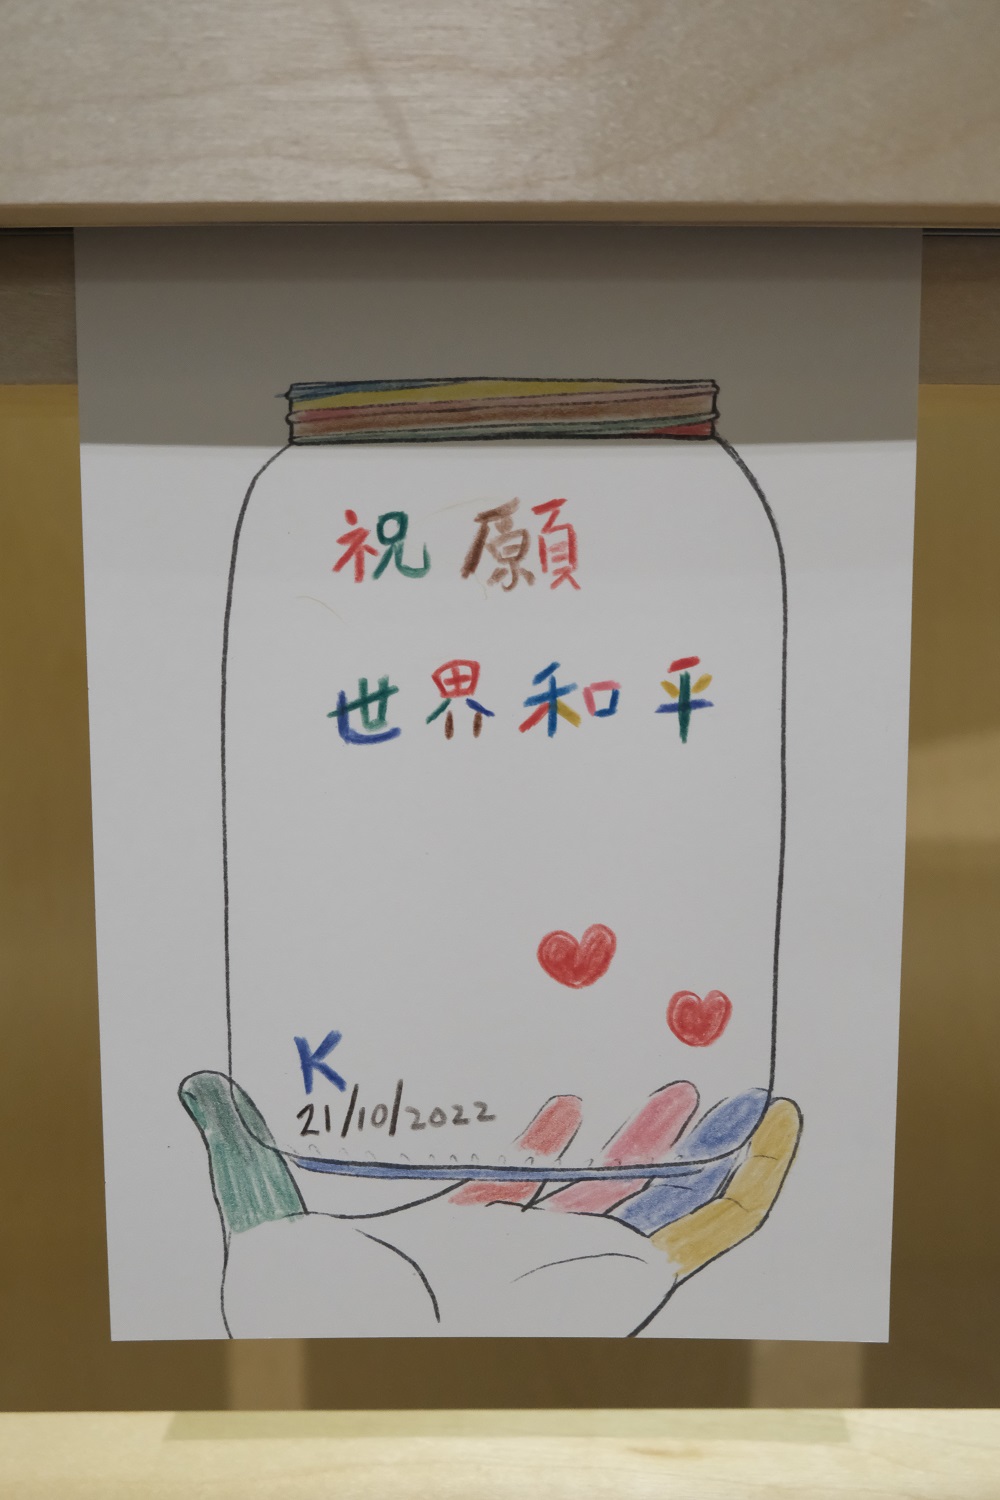 祝願
世界和平
K
21/10/2022